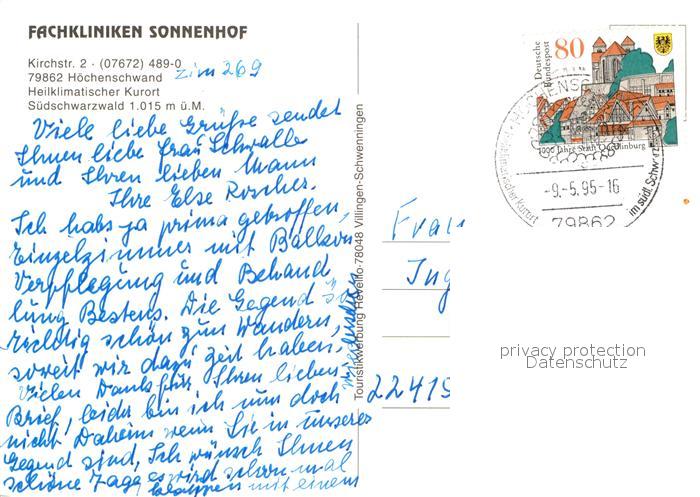 FACHKLINIKEN SONNENHOF
Kirchstr. 2 · (07672) 489-0
79862 Höchenschwand
Heilklimatischer Kurort
Südschwarzwald 1.015 m ü.M.
Zim 269
Viele liebe Grüße sendet
Ihnen liebe Frau Schwalle
und Ihren lieben Mann
Ihre Else Roscher.
Ich habs ja prima getroffen,
Einzelzimmer mit Balkon
Verpflegung und Behand
lung Bestens. Die Gegend is
richtig schön zum Wandern,
soweit wir dazu Zeit haben.
Vielen Dank für Ihren lieben
Brief, leider bin ich nun doch
nicht Daheim wenn Sie in unseres
Gegend sind, Ich wünsch Ihnen
schöne Tage es wird schon mal
klappen mit einem
Touristikwerbung 78048 Villingen-Schwenningen
Deutsche
Bundespost
80
1000 Jahre Stadt Quedlinburg
HÖCHENSC
heilklimatischer Kurort
im südl. Schwarz
-9.-5.95-16
79862
Frau
Ing
22419
privacy protection
Datenschutz